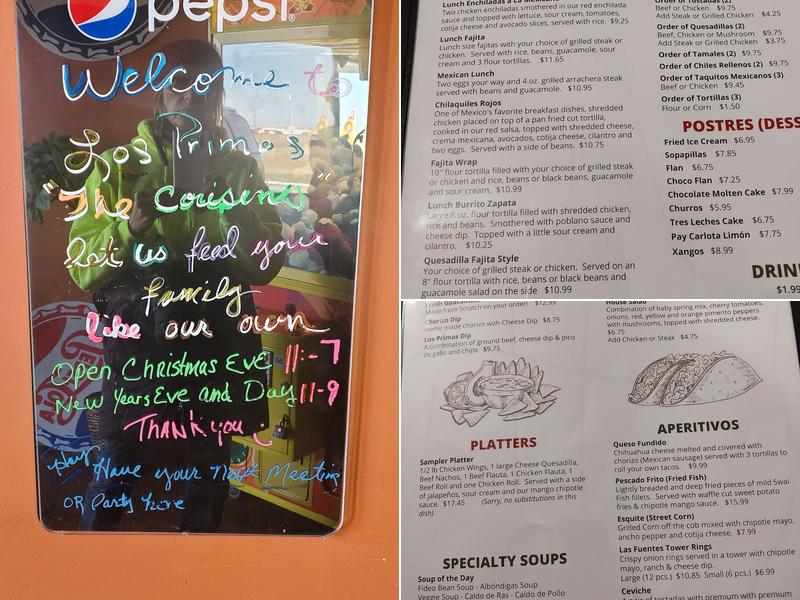 pepsi
Welcome to
Los Primos
"The Cousins"
let us feed your
family
like our own
Open Christmas Eve 11:-7
New Years Eve and Day 11-9
Thank you
Have your Next Meeting
OR Party here
Lunch Enchiladas a La
Two chicken enchiladas
sauce and topped with lettuce, sour cream, tomatoes,
cotija cheese and avocado slices, served with rice. $9.25
Lunch Fajita
Lunch size fajitas with your choice of grilled steak or
chicken. Served with rice, beans, guacamole, sour
cream and 3 flour tortillas. $11.65
Mexican Lunch
Two eggs your way and 4 oz. grilled arrachera steak
served with beans and guacamole. $10.95
Chilaquiles Rojos
One of Mexico's favorite breakfast dishes, shredded
chicken placed on top of a pan fried cut tortilla,
cooked in our red salsa, topped with shredded cheese,
crema mexicana, avocados, cotija cheese, cilantro and
two eggs. Served with a side of beans. $10.75
Fajita Wrap
10" flour tortilla filled with your choice of grilled steak
or chicken and rice, beans or black beans, guacamole
and sour cream. $10.99
Lunch Burrito Zapata
Large 8 oz. flour tortilla filled with shredded chicken,
rice and beans. Smothered with poblano sauce and
cheese dip. Topped with a little sour cream and
cilantro. $10.25
Quesadilla Fajita Style
Your choice of grilled steak or chicken. Served on an
8" flour tortilla with rice, beans or black beans and
guacamole salad on the side $10.99
Order of Tostadas (2)
Beef or Chicken $9.75
Add Steak or Grilled Chicken $4.25
Order of Quesadillas (2)
Beef, Chicken or Mushroom $9.75
Add Steak or Grilled Chicken $3.75
Order of Tamales (2) $9.75
Order of Chiles Rellenos (2) $9.75
Order of Taquitos Mexicanos (3)
Beef or Chicken $9.45
Order of Tortillas (3)
Flour or Corn $1.50
POSTRES (DESS
Fried Ice Cream $6.95
Sopapillas $7.85
Flan $6.75
Choco Flan $7.25
Chocolate Molten Cake $7.99
Churros $5.95
Tres Leches Cake $6.75
Pay Carlota Limón $7.75
Xangos $8.99
DRIN
$1.99
Fresh Guacamole $12.99
Made from Scratch on your order!
Chorizo Dip
Home made chorizo with Cheese Dip $8.75
Los Primas Dip
A combination of ground beef, cheese dip & pico
de gallo and chips $9.75
PLATTERS
Sampler Platter
1/2 lb Chicken Wings, 1 large Cheese Quesadilla,
Beef Nachos, 1 Beef Flauta, 1 Chicken Flauta, 1
Beef Roll and one Chicken Roll. Served with a side
of jalapeños, sour cream and our mango chipotle
sauce. $17.45 (Sorry, no substitutions in this
dish)
SPECIALTY SOUPS
Soup of the Day
Fideo Bean Soup - Albóndigas Soup
Veggie Soup - Caldo de Ras - Caldo de Pollo
House Salad
Combination of baby spring mix, cherry tomatoes,
onions, red, yellow and orange pimento peppers
with mushrooms, topped with shredded cheese.
$6.75
Add Chicken or Steak $4.75
APERITIVOS
Queso Fundido
Chihuahua cheese melted and covered with
chorizo (Mexican sausage) served with 3 tortillas to
roll your own tacos. $9.99
Pescado Frito (Fried Fish)
Lightly breaded and deep fried pieces of mild Swai
Fish fillets. Served with waffle cut sweet potato
fries & chipotle mango sauce. $15.99
Esquite (Street Corn)
Grilled Corn off the cob mixed with chipotle mayo,
ancho pepper and cotija cheese. $7.99
Las Fuentes Tower Rings
Crispy onion rings served in a tower with chipotle
mayo, ranch & cheese dip.
Large (12 pcs.) $10.85 Small (6 pcs.) $6.99
Ceviche